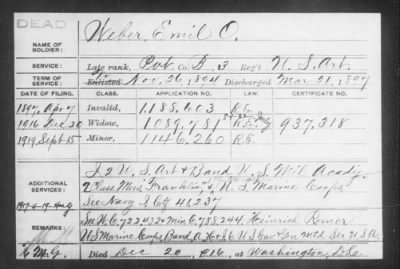 DEAD
NAME OF SOLDIER: Weber, Emil O.
SERVICE: Late rank, Pvt. Co. D, 3 Reg't U. S. Art.
TERM OF SERVICE: Enlisted Nov. 26, 1894 Discharged Mar 21, 1897
DATE OF FILING. CLASS. APPLICATION NO. CERTIFICATE NO.
1897, Apr 7 Invalid, 1.188.603
1916 Dec 20 Widow, 1089,781 937,318
1919 Sept 15 Minor, 1146,260
ADDITIONAL SERVICES: U. S. Art & Band U. S. Mil Acady.
2 Class Mus "Franklin", & U. S. Marine Corps
See Navy 41237
See W.C. 722432 & Min C. 788,244. Heinrich
US Marine Corps Band, U.S. U.S.A.
Died Dec 20, 1916, at Washington, D.C.